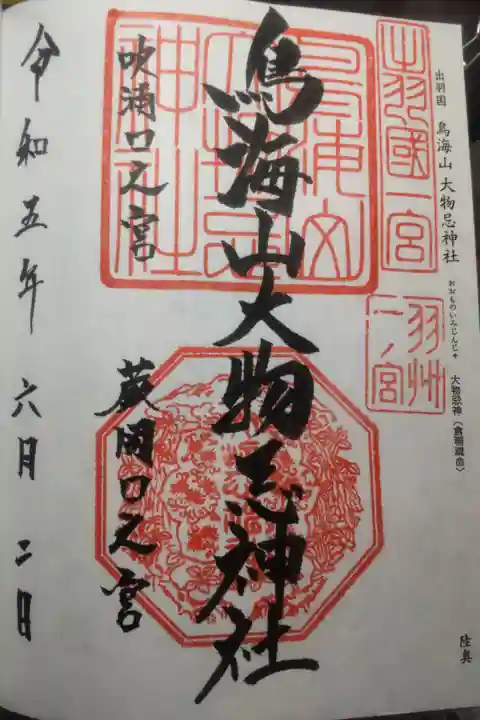 出羽国 鳥海山 大物忌神社
おおものいみじんじゃ
大物忌神(倉稲魂命)
陸奥
出羽國一宮
羽州一ノ宮
鳥海山大物忌神社
鳥海山大物忌神社
吹浦口之宮
蕨岡口之宮
令和五年 六月 二日